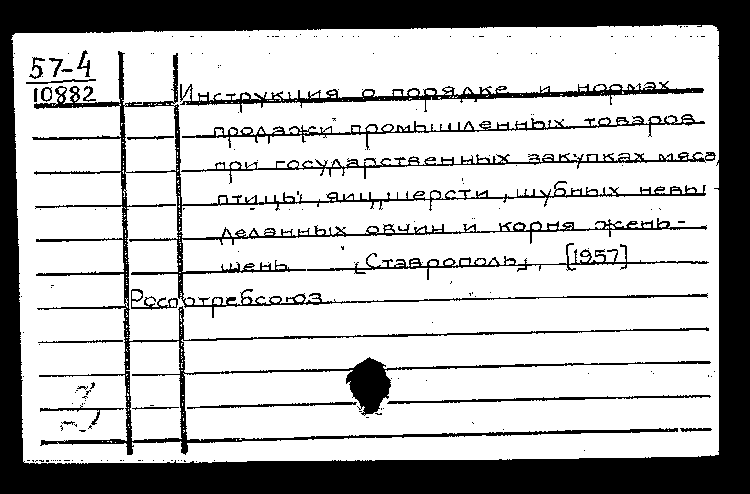 57-4
10882
Инструкция о порядке и нормах
продажи промышленных товаров
при государственных закупках мяса,
птицы, яиц, шерсти, шубных невы-
деланных овчин и корня жень-
шень [Ставрополь], [1957]
Роспотребсоюз